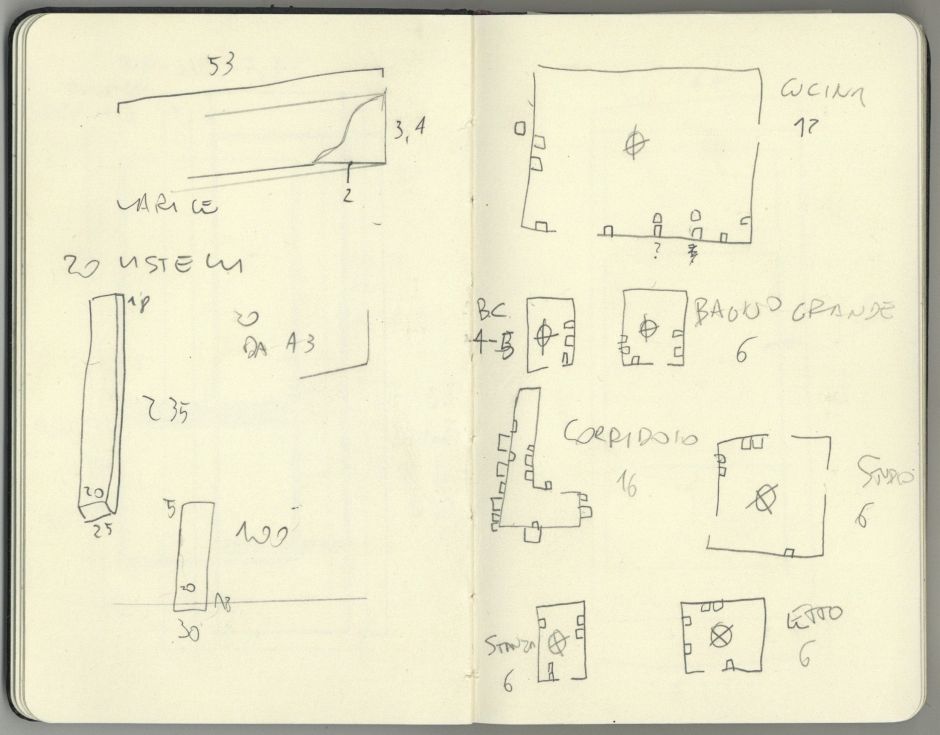 53
3,4
2
LARICE
20 LISTELLI
18
20
DA A3
235
20
25
5
100
30
CUCINA
12
?
BC.
BAGNO GRANDE
6
CORRIDOIO
16
STUDIO
6
STANZA
6
LETTO
6